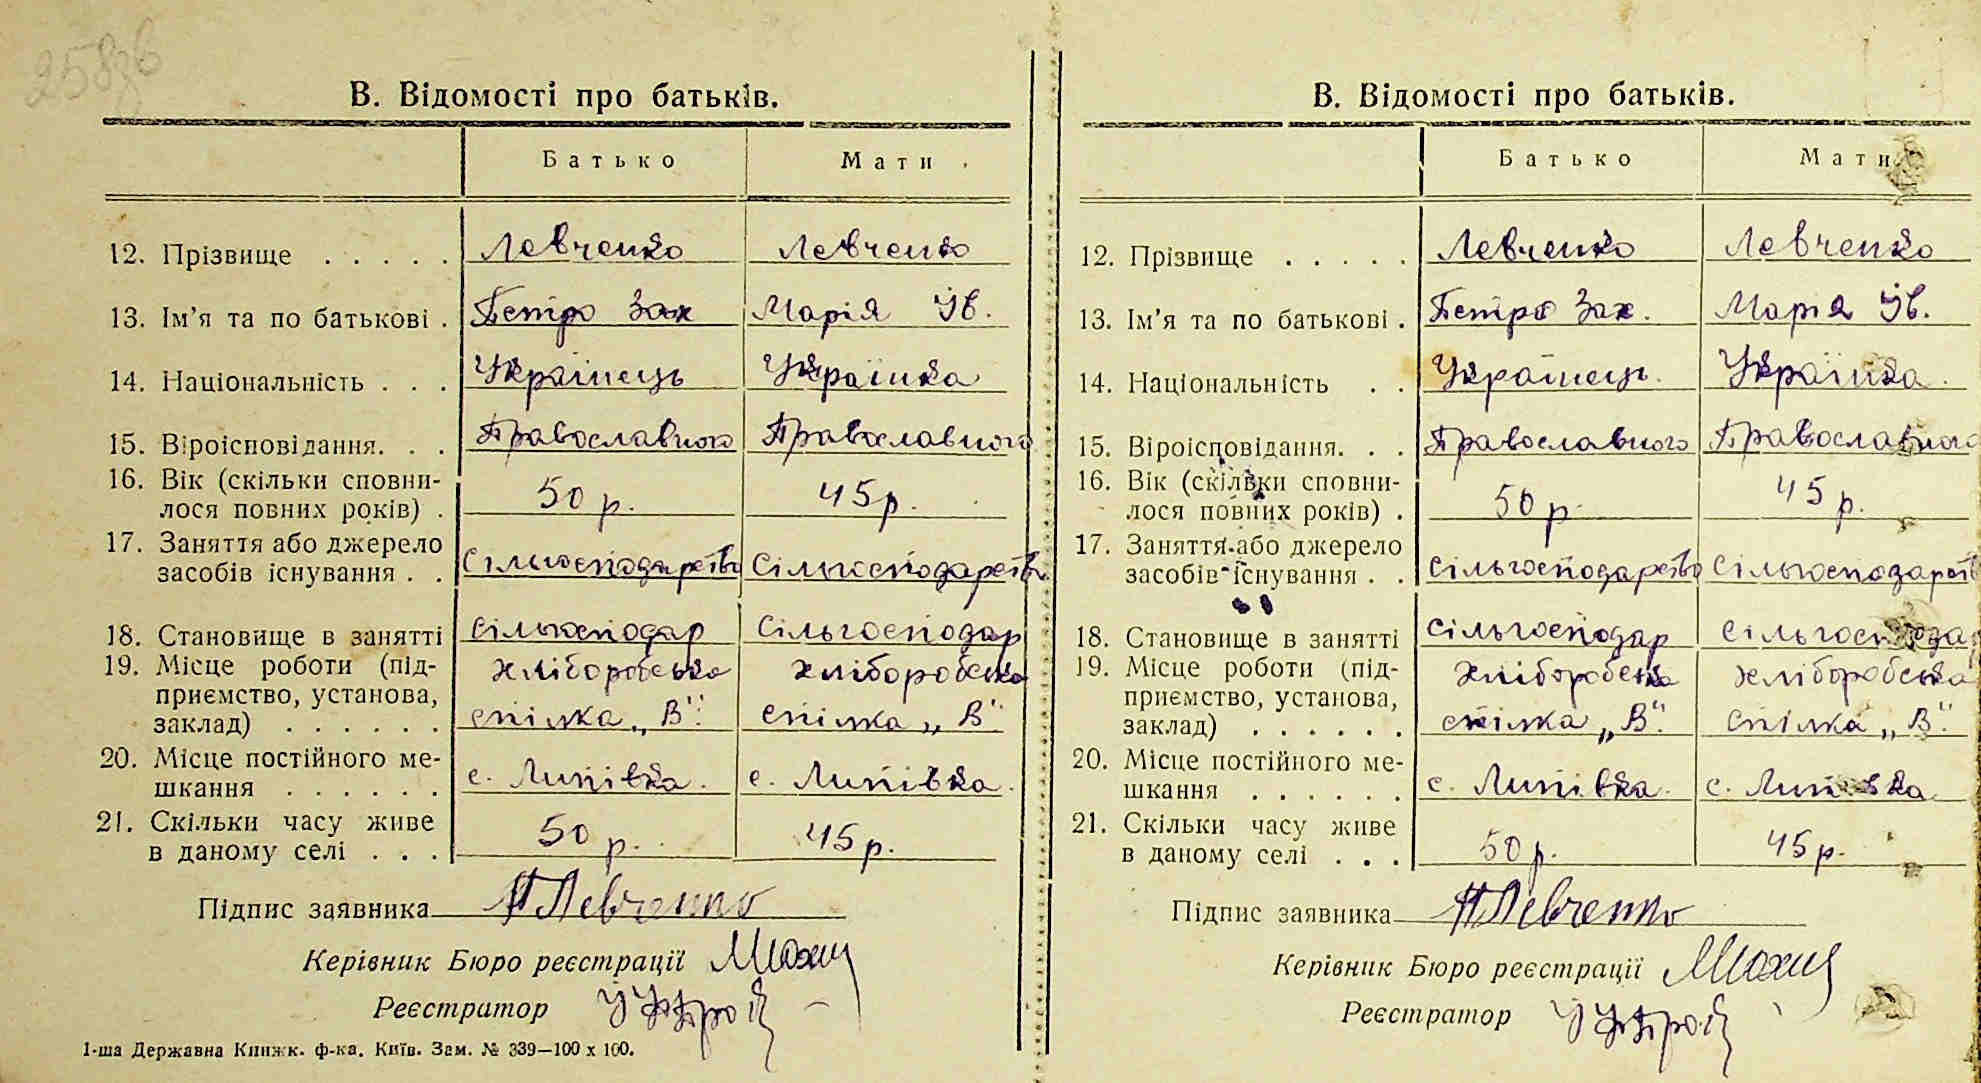 В. Відомості про батьків.
Батько Мати
12. Прізвище . . . . . Левченко Левченко
13. Ім'я та по батькові . Петро Зах Марія Ів.
14. Національність . . . Українець Українка
15. Віроісповідання. . . Православного Православного
16. Вік (скільки сповни-
лося повних років) . 50 р. 45 р.
17. Заняття або джерело
засобів існування . . Сільгосподарство Сільгосподарств
18. Становище в занятті Сільгосподар Сільгосподар
19. Місце роботи (під- хліборобська хліборобська
приємство, установа,
заклад) . . . . . . спілка „В". спілка „В".
20. Місце постійного ме-
шкання . . . . . . с. Липівка. с. Липівка.
21. Скільки часу живе
в даному селі . . . 50 р. 45 р.
Підпис заявника П Левченко
Керівник Бюро реєстрації
Реєстратор
1-ша Державна Книжк. ф-ка. Київ. Зам. № 339—100 х 100.
В. Відомості про батьків.
Батько Мати
12. Прізвище . . . . . Левченко Левченко
13. Ім'я та по батькові . Петро Зах. Марія Ів.
14. Національність . . Українець. Українка.
15. Віроісповідання. . . Православного Православного
16. Вік (скільки сповни-
лося повних років) . 50 р. 45 р.
17. Заняття або джерело
засобів існування . . Сільгосподарство Сільгосподарств
18. Становище в занятті Сільгосподар Сільгоспода
19. Місце роботи (під- хліборобська хліборобська
приємство, установа,
заклад) . . . . . . спілка „В". спілка „В".
20. Місце постійного ме-
шкання . . . . . . с. Липівка. с. Липівка
21. Скільки часу живе
в даному селі . . . 50 р. 45 р.
Підпис заявника П Левченко
Керівник Бюро реєстрації
Реєстратор